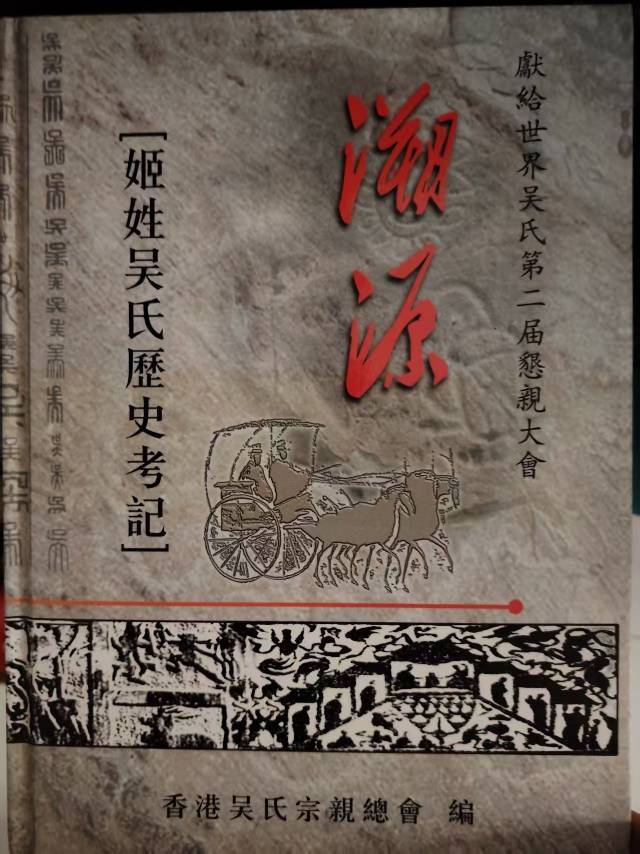 獻給世界吴氏第二届懇親大會
溯源
[姬姓吴氏歷史考記]
香港吴氏宗親總會 編